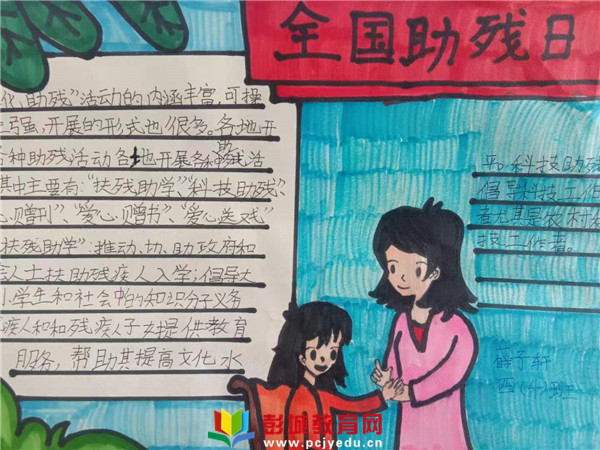 全国助残日
化助残”活动的内涵丰富,可操
强,开展的形式也很多。各地开
各种助残活动各地开展各种助残活
其中主要有:“扶残助学”、“科技助残”、
心赠刊”、“爱心赠书”、“爱心送戏”
扶残助学”:推动、协、助政府和
人士扶助残疾人入学;倡导大
小学生和社会帕的知识分子义务
疾人和和残疾人子女提供教育
服务,帮助其提高文化水
和科技助残
倡导科技工作
者尤其是农村
技工作者。
薛子轩
四(4)班
彭城教育网
www.pcjyedu.cn